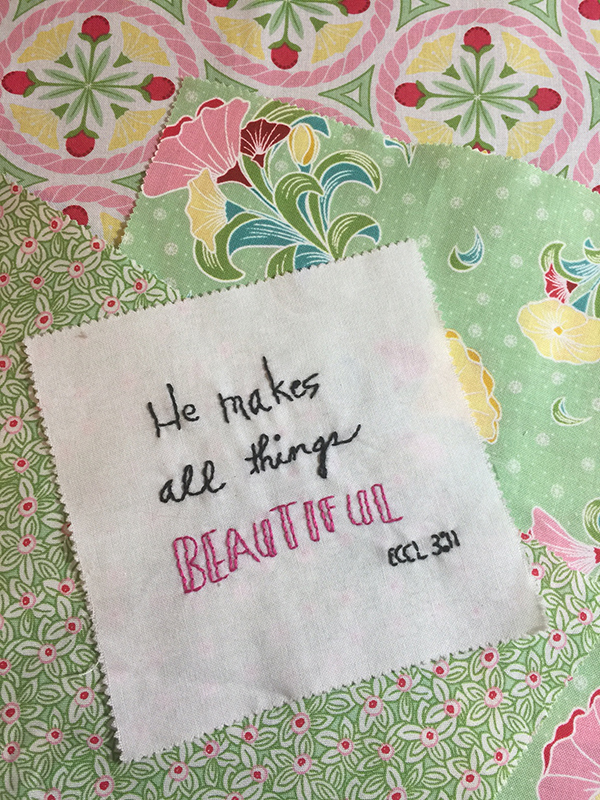 He makes
all things
BEAUTIFUL
ECCL 3:11